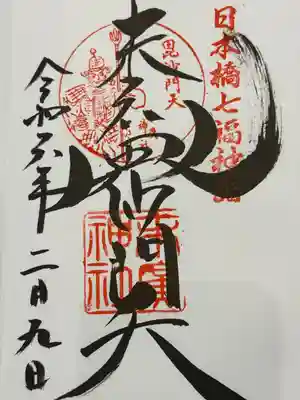 日本橋七福神詣
毘沙門天
末廣毘沙門天
末廣神社
令和六年二月九日